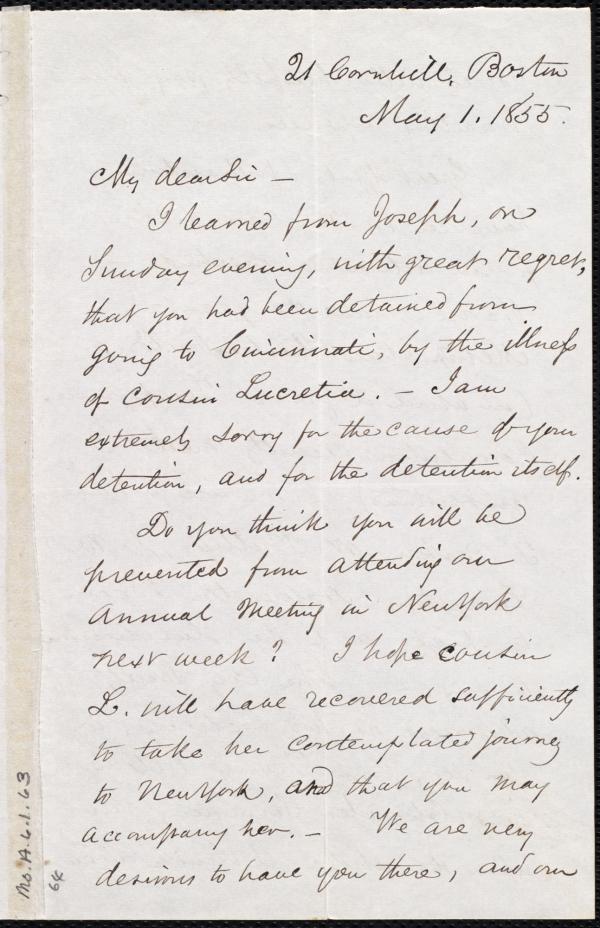 21 Cornhill, Boston
May 1. 1855.
My dear Sir —
I learned from Joseph, on
Sunday evening, with great regret,
that you had been detained from
going to Cincinnati, by the illness
of Cousin Lucretia. — I am
extremely sorry for the cause of your
detention, and for the detention itself.
Do you think you will be
prevented from attending our
Annual Meeting in New York
next week? I hope cousin
L. will have recovered sufficiently
to take her contemplated journey
to New York, and that you may
accompany her. — We are very
desirous to have you there, and our
Ms. A. 6.1. 63
64